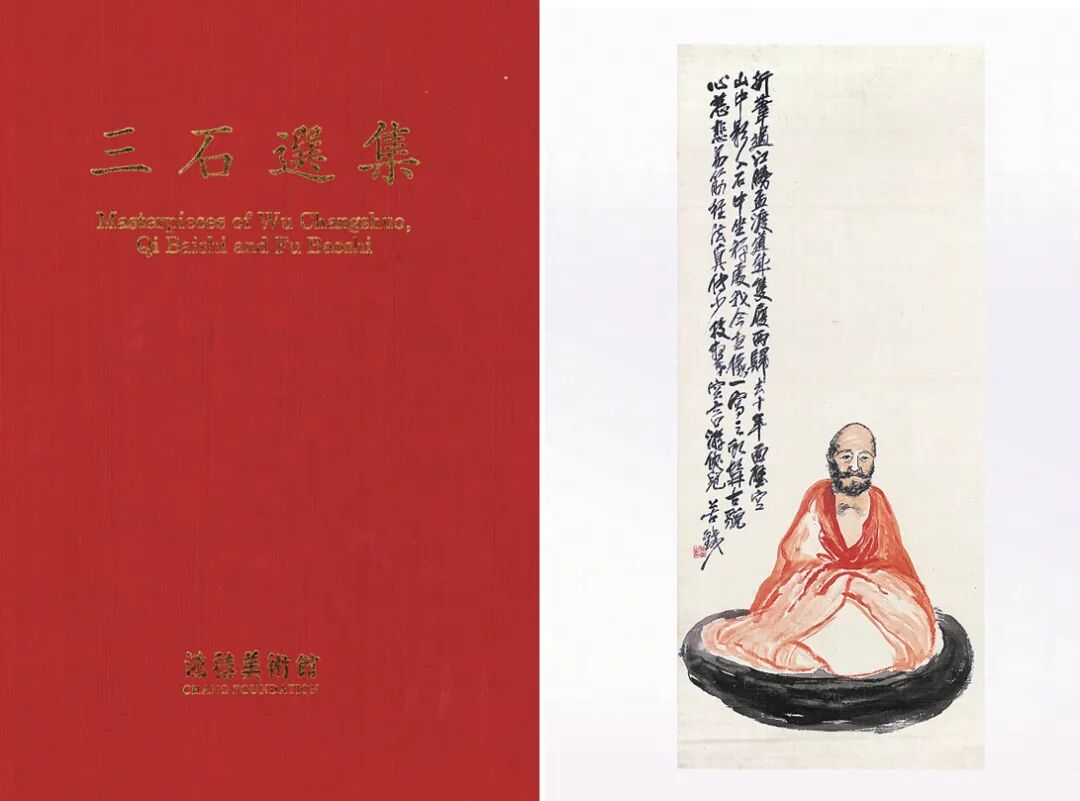 三石選集
Masterpieces of Wu Changshuo,
Qi Baishi and Fu Baoshi
鴻禧美術館
CHANG FOUNDATION
折葦過江勝盃渡隻履西歸去十年面壁空
山中影入石中坐禪處我今畫像一寫之古貌
心慈悲易筋經法真傳少技擊空言游俠兒 苦鐵